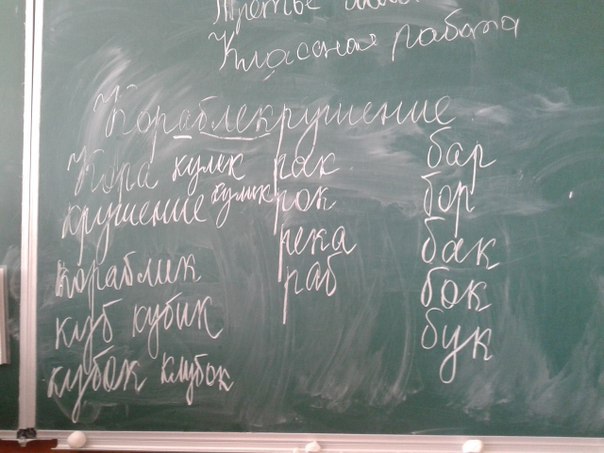 Третье
Классная работа
Кораблекрушение
Кора кулек рак бар
крушение кулик рок бор
река бак
кораблик раб бок
куб кубик бук
кубок клубок